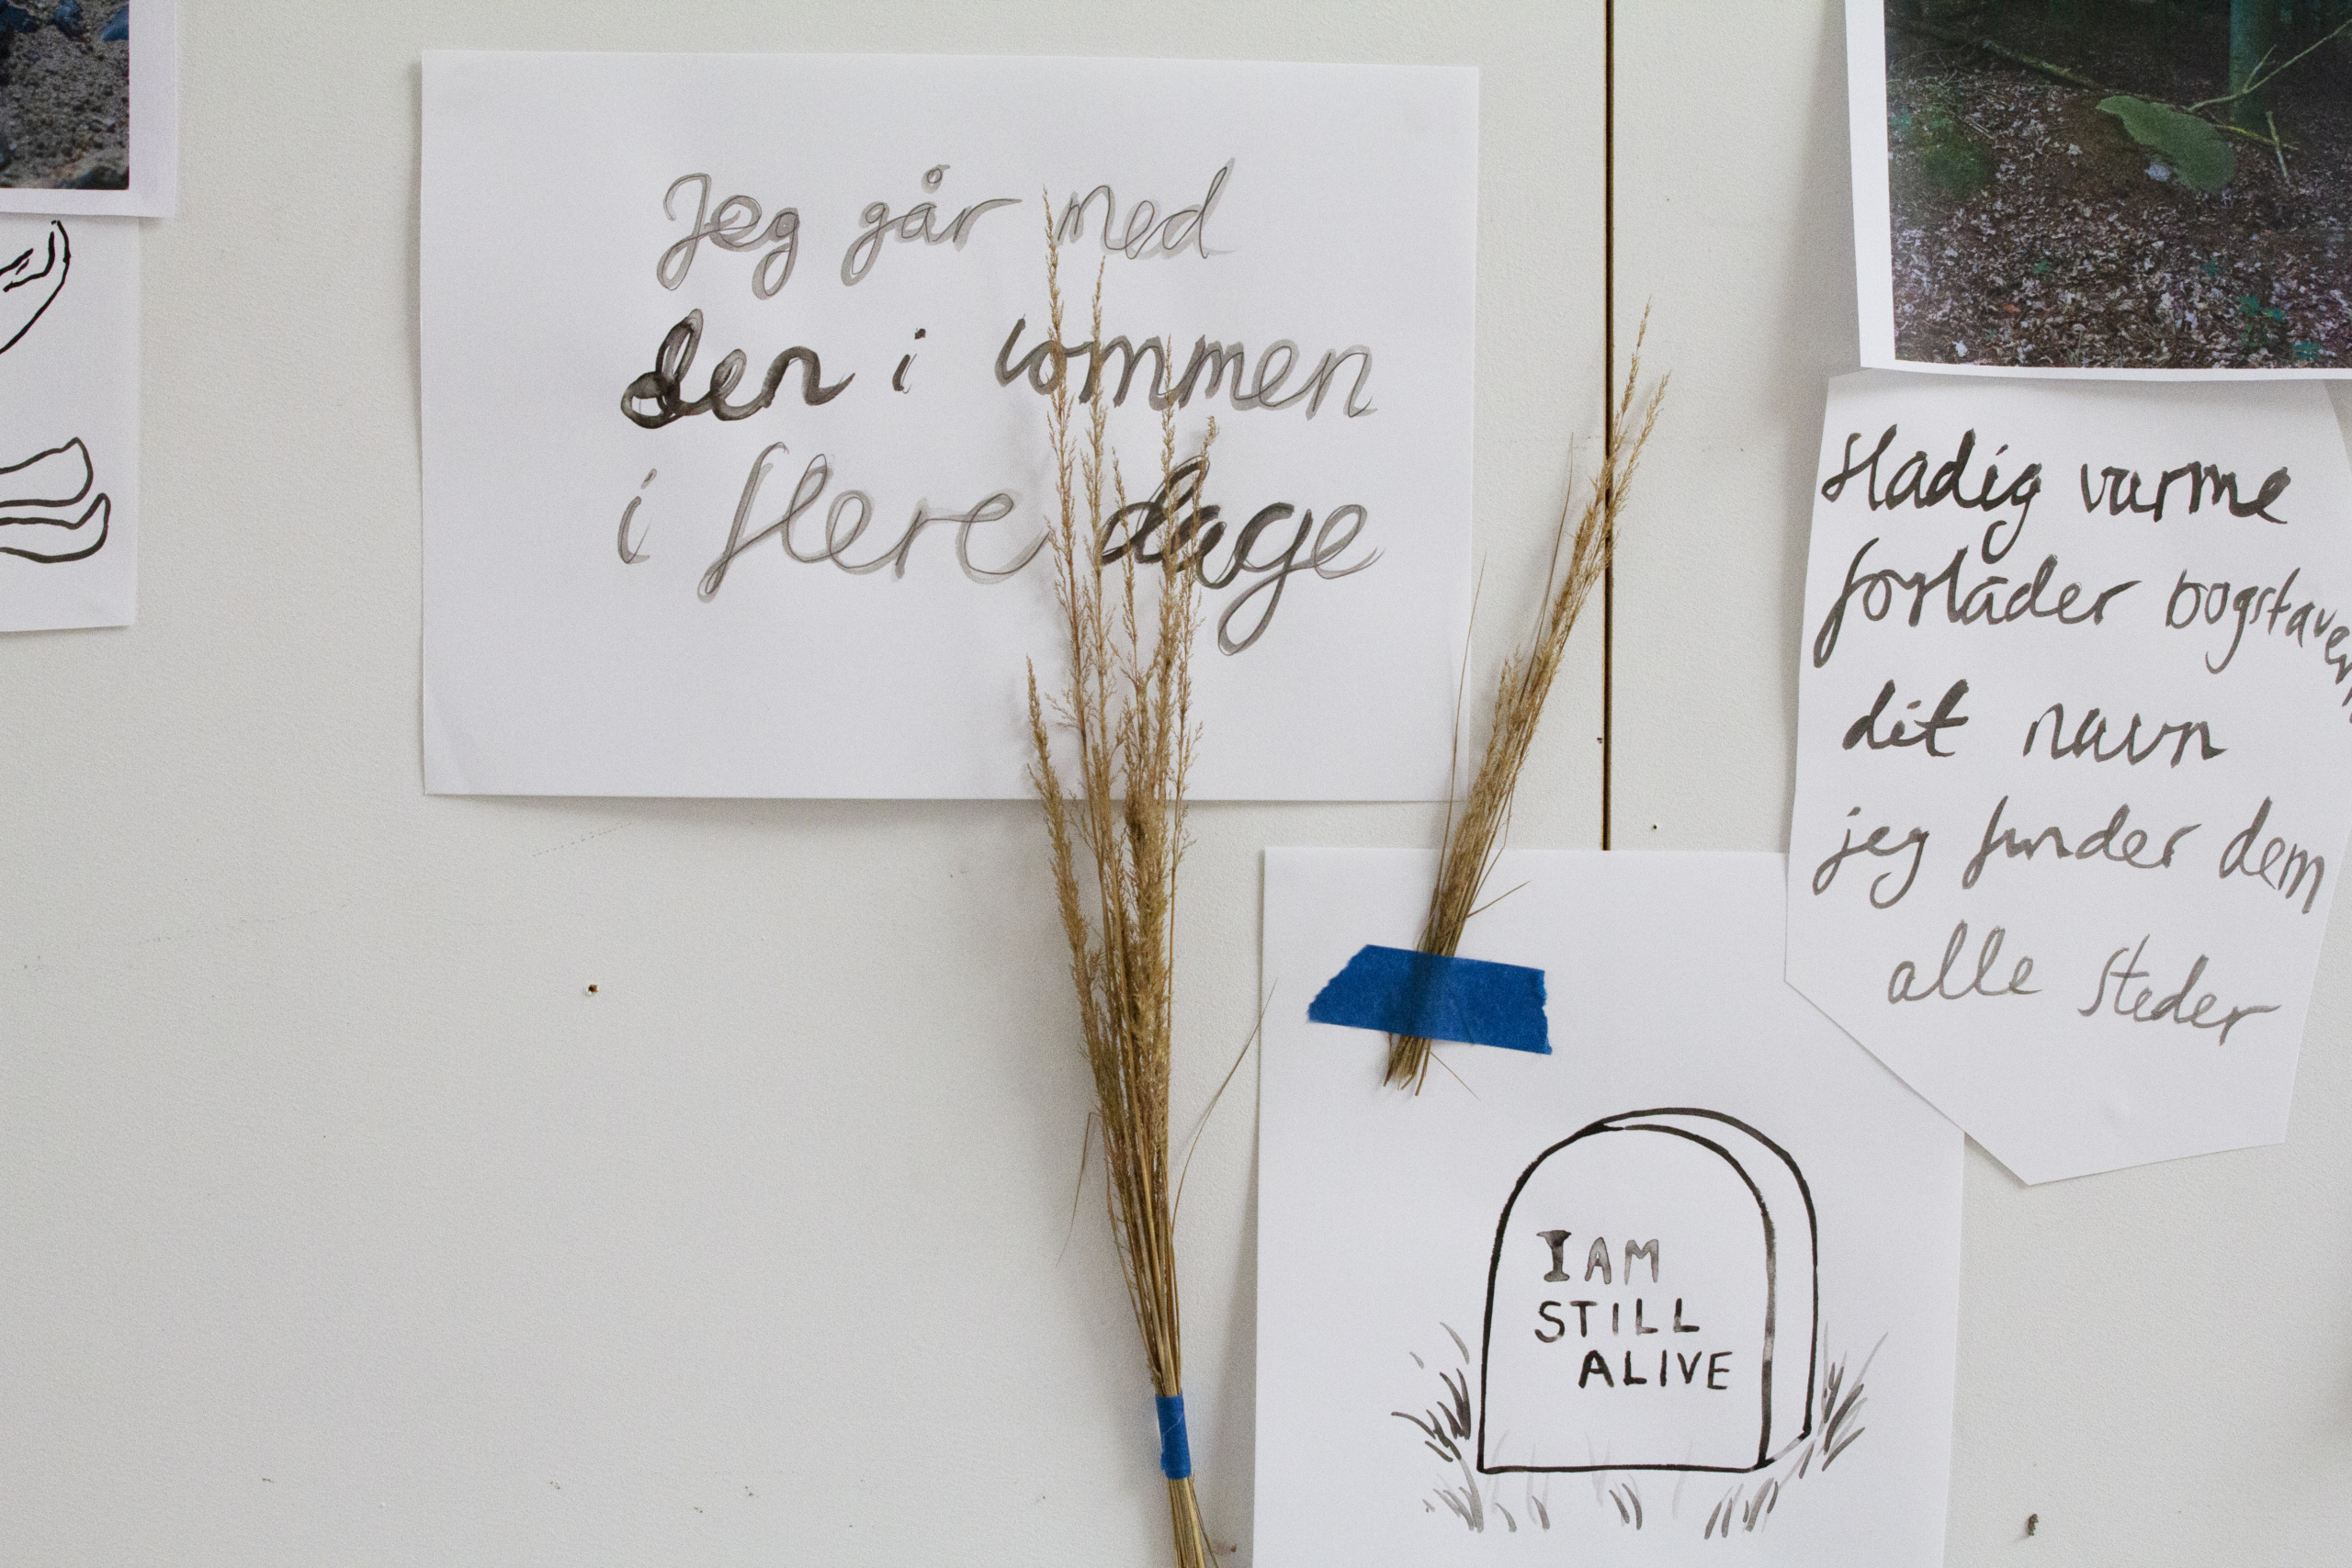 Jeg går med
den i lommen
i flere dage
Stadig varme
forlader bogstaver
dit navn
jeg finder dem
alle steder
I AM
STILL
ALIVE